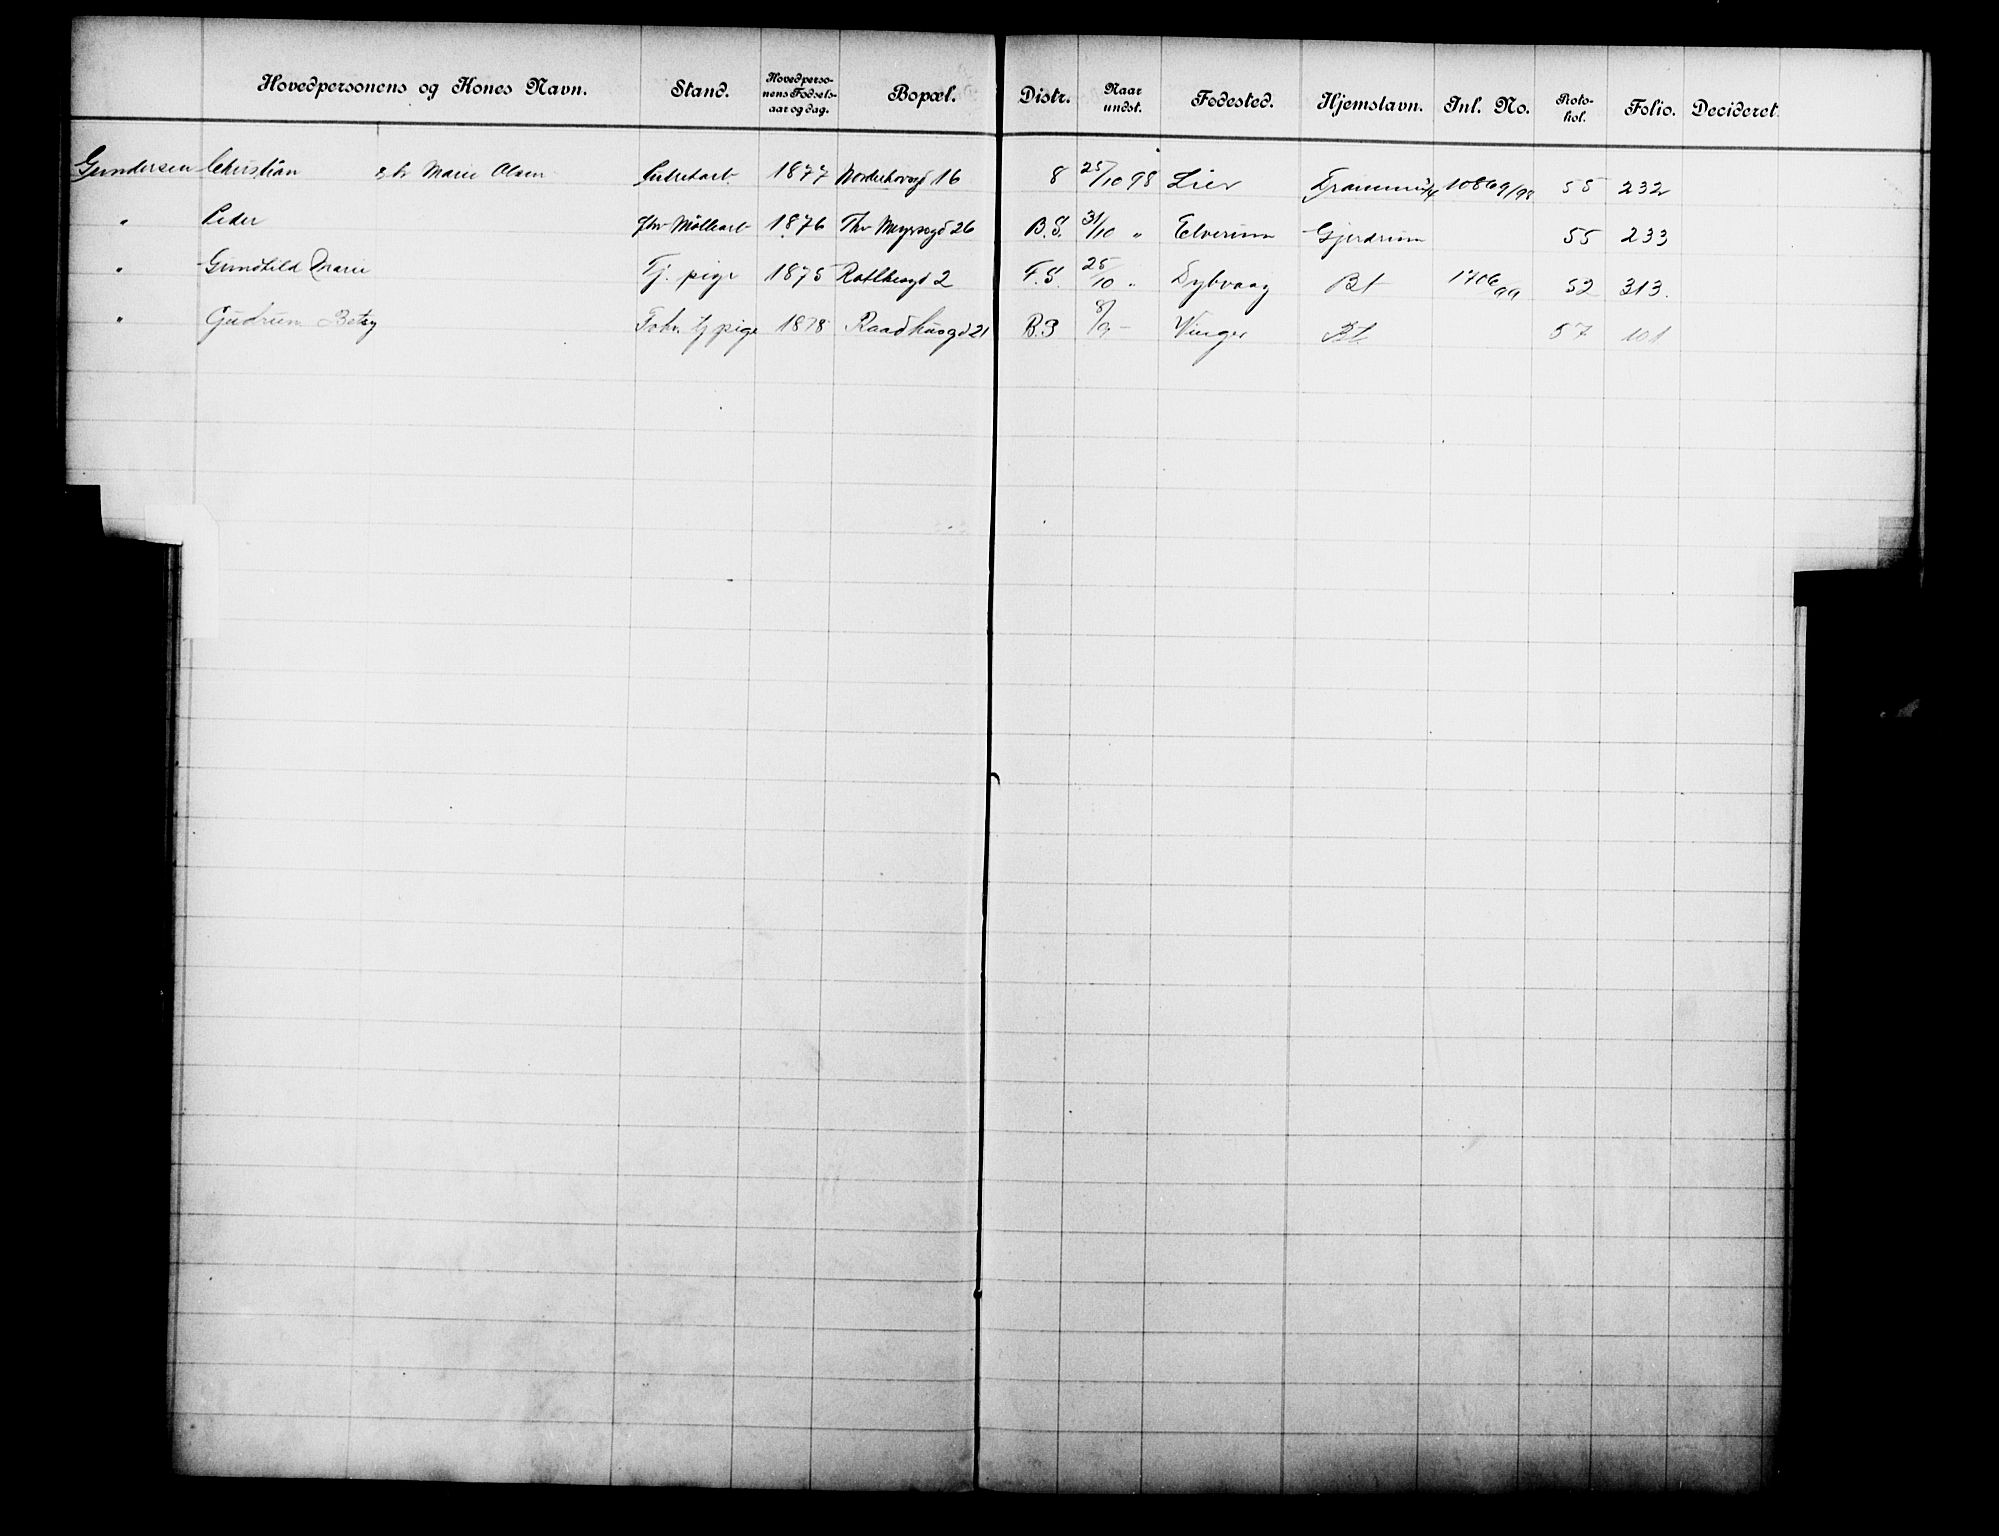 Hovedpersonens og Kones Navn. Stand. Hovedpersonens Fødselsaar og dag. Bopæl. Distr. Naar undst. Fødested. Hjemstavn. Jnl. No. Protokol. Folio. Decideret.
Gundersen Christian Marie Olsen 1877 Norderhovsgd 16 8 25/10 98 Lier 10869/98 55 232
" Peder Møllearb 1876 Thv Meyersgd 26 B.S. 31/10 " Elverum Gjerdrum 55 233
" Gundhild Marie Tj. pige 1875 Rathkesgd 2 F.S. 25/10 " Dybvaag Bt 1706/99 52 313.
" Gudrun Betsy Tj pige 1878 Raadhusgd 21 B.S 8/9 - Vinger Bt 57 101